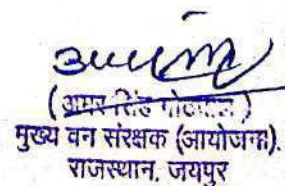 (अमर सिंह गोठवाल)
मुख्य वन संरक्षक (आयोजना).
राजस्थान, जयपुर